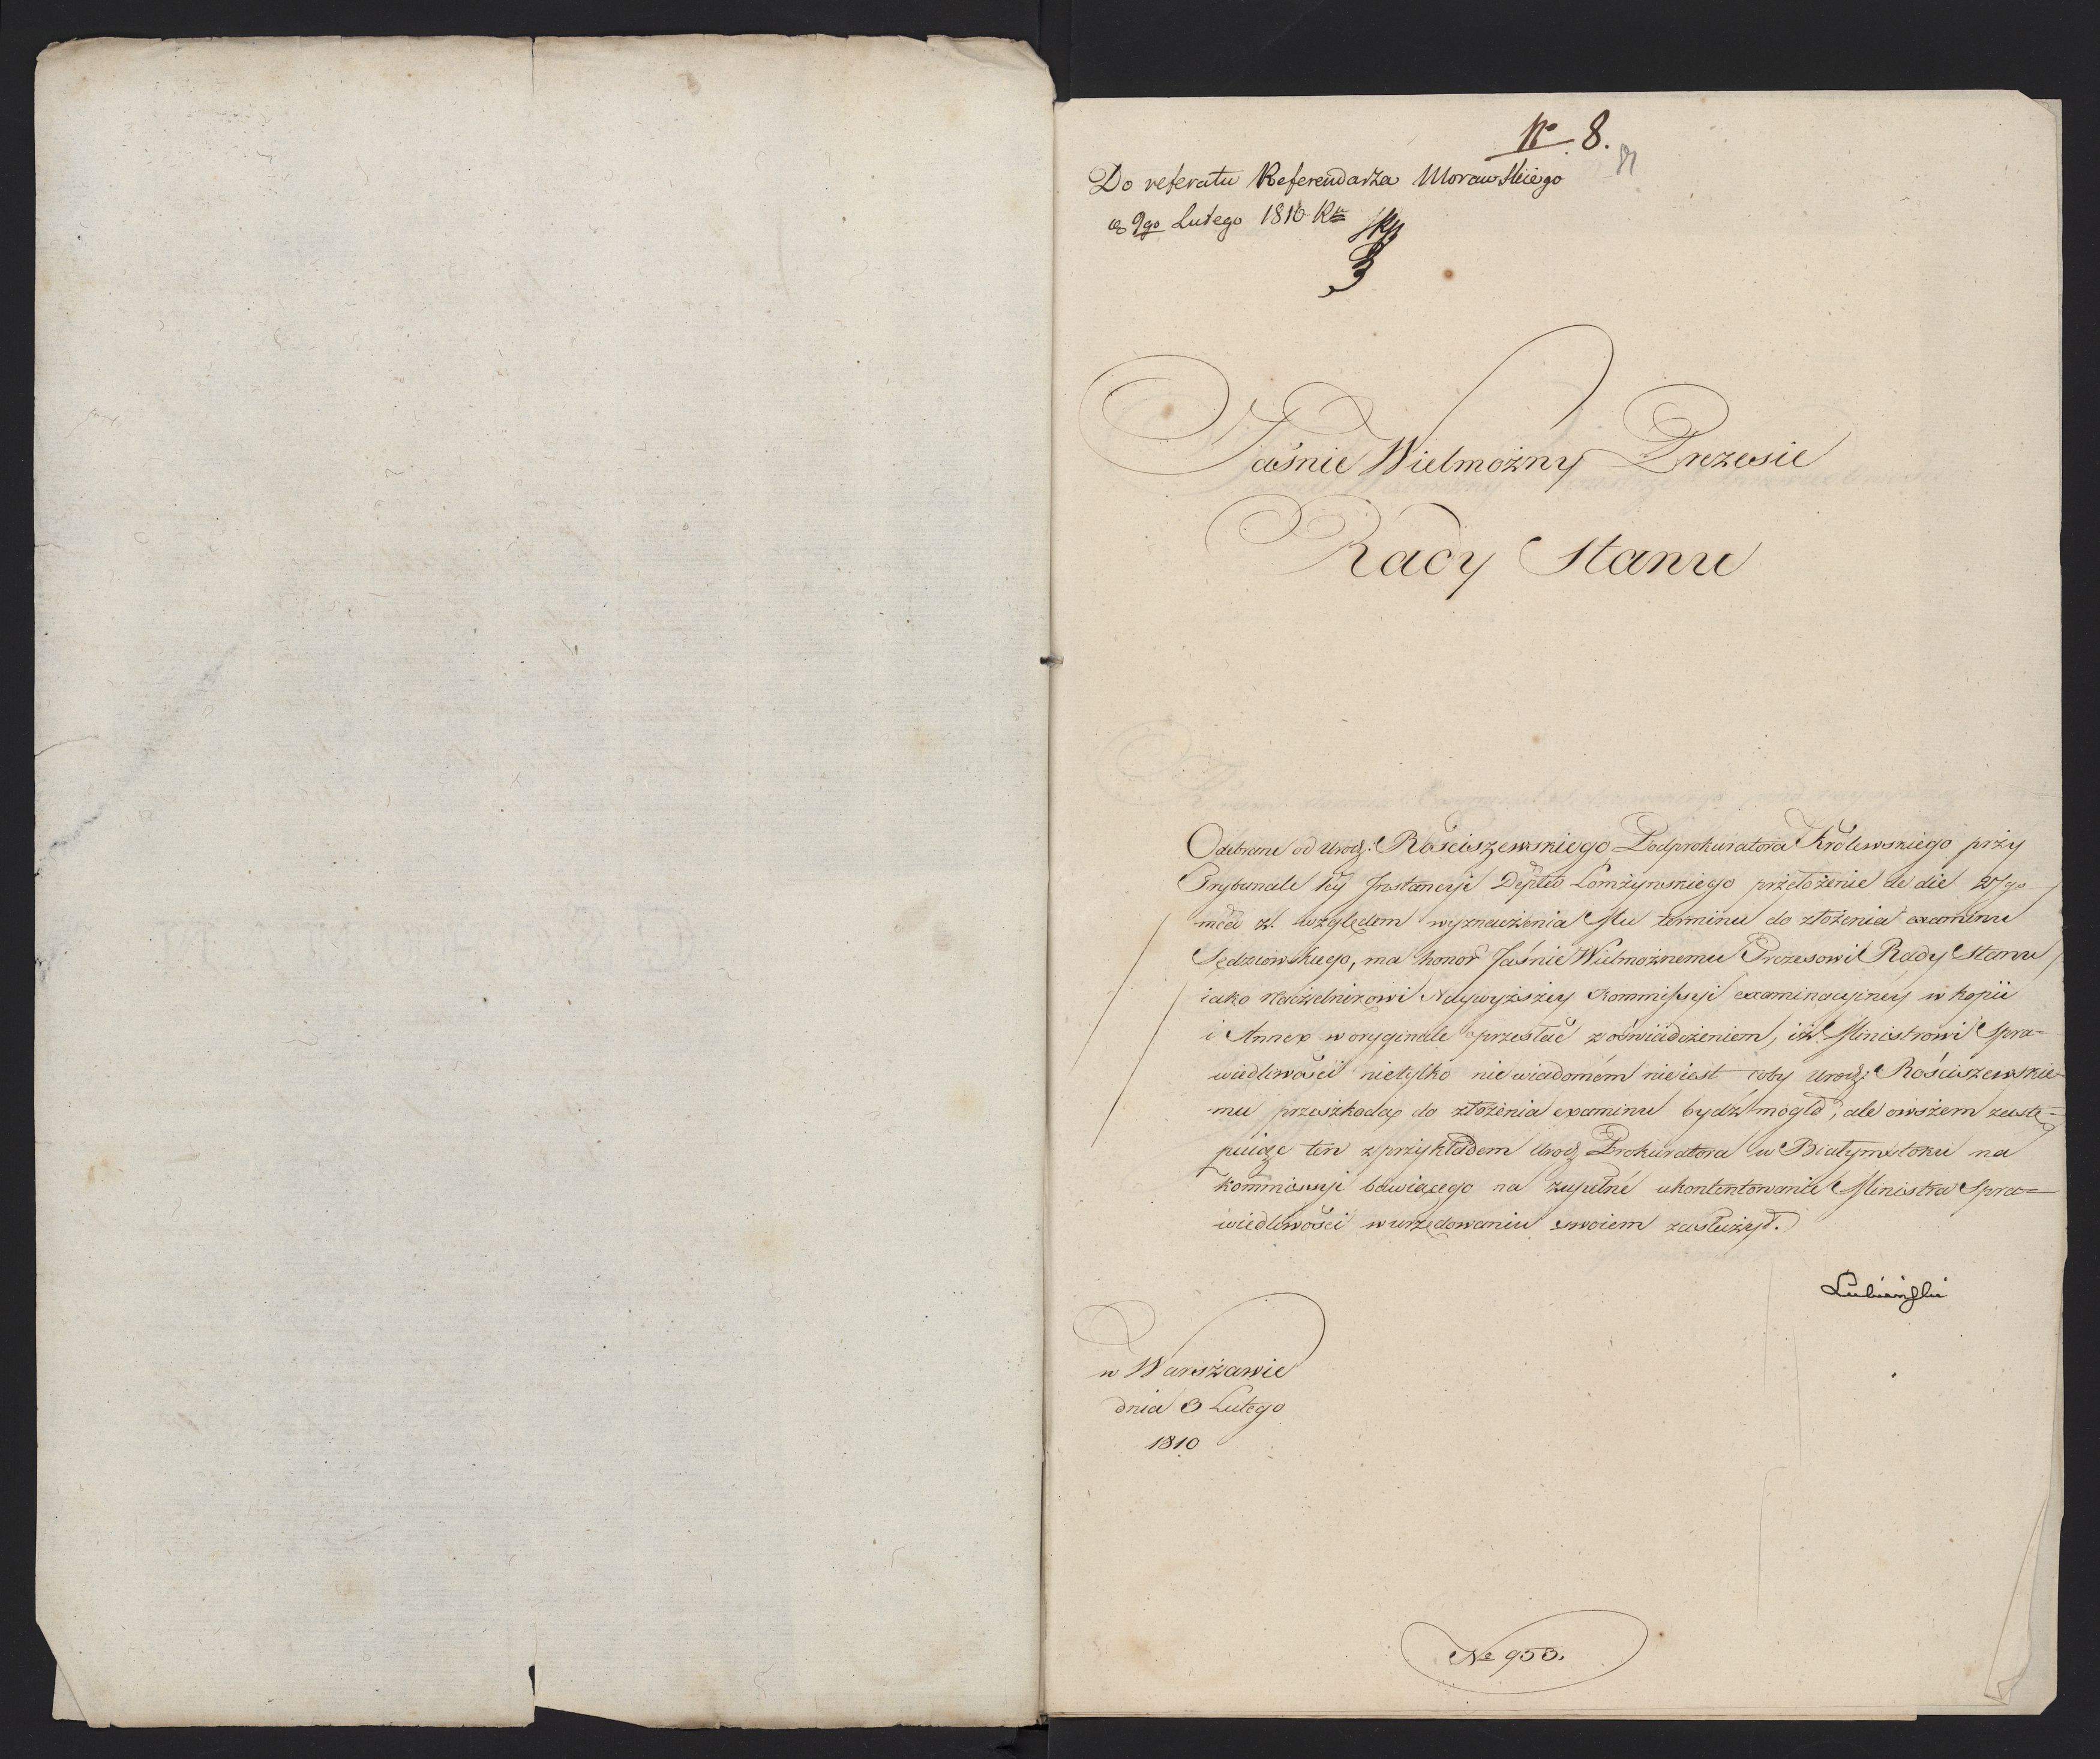 No 8.
Do referatu Referendarza Morawskiego
9go Lutego 1810 Rku
Jaśnie Wielmożny Prezesie
Rady Stanu
Odebrane od Urodz: Rościszewskiego Podprokuratora Królewskiego przy
Trybunale Iey Instancyi Deptu Łomżyńskiego przełożenie de die 27go
mca z. względem wyznaczenia Mu terminu do złożenia examinu
Sędziowskiego, ma honor Jaśnie Wielmożnemu Prezesowi Rady Stanu
iako Naczelnikowi Naywyższey Kommissyi examinacyiney w kopii
i Annex w oryginale przesłać z oświadczeniem, iż Ministrowi Spra=
wiedliwości nietylko nie wiadomém nie iest coby Urodz: Rościszewskie=
mu przeszkodą do złożenia examinu bydź mogło, ale owszem zastę=
puiąc ten z przykładem Urodz Prokuratora w Białymstoku na
kommissyi bawiącego na zupełné ukontentowanie Ministra Spra=
wiedliwości w urzędowaniu swoiem zasłużył.
Lubieński
w Warszawie
dnia 3 Lutego
1810
No 953.